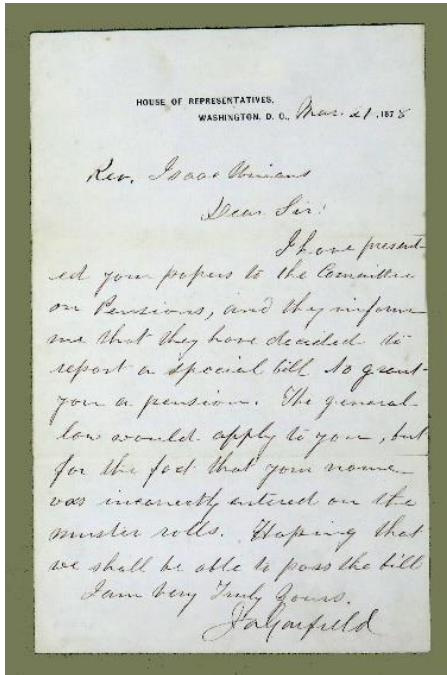 HOUSE OF REPRESENTATIVES,
WASHINGTON, D. C., Mar. 21, 1878
Rev. Isaac Winans
Dear Sir:
I have present-
ed your papers to the Committee
on Pensions, and they inform
me that they have decided to
report a special bill to grant
you a pension. The general
law would apply to you, but
for the fact that your name
was incorrectly entered on the
muster rolls. Hoping that
we shall be able to pass the bill
I am Very Truly Yours.
J A Garfield